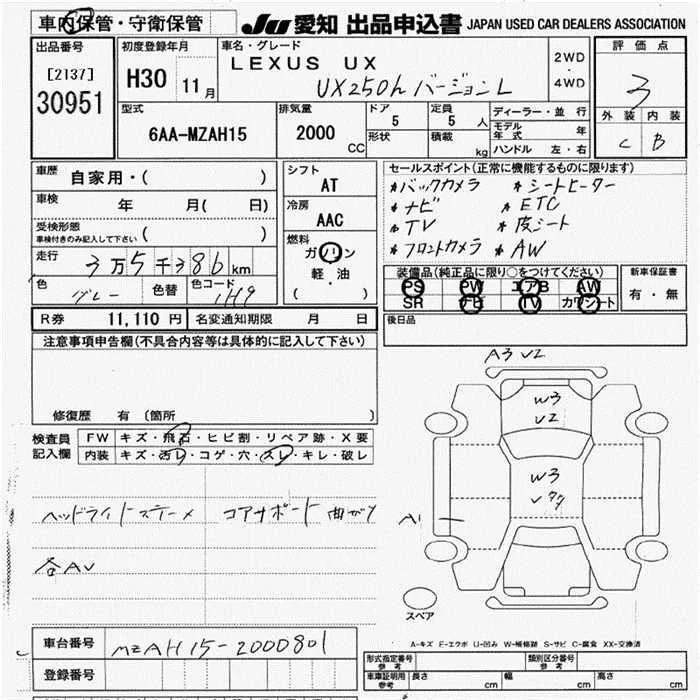 車内保管・守衛保管
JU 愛知 出品申込書 JAPAN USED CAR DEALERS ASSOCIATION
出品番号
[2137]
30951
初度登録年月
H30 11月
車名・グレード
LEXUS UX
UX250h バージョンL
2WD
・
4WD
評価点
3
外装 内装
C B
型式
6AA-MZAH15
排気量
2000 CC
ドア
5
形状
定員
5 人
積載 kg
ディーラー・並行
モデル年式 年
ハンドル 左・右
車歴
自家用・( )
車検
年 月( 日)
受検形態
車検付きのみ記入して下さい ( )
走行
3万5千386km
色
グレー
色替
色コード
1H9
シフト
AT
冷房
AAC
燃料
ガソリン
軽・油
( )
セールスポイント(正常に機能するものに限ります)
*バックカメラ *シートヒーター
*ナビ *ETC
*TV *皮シート
*フロントカメラ *AW
装備品(純正品に限り○をつけてください)
PS PW エアB AW
SR ナビ TV カワシート
新車保証書
有・無
後日品
R券 11,110円 名変通知期限 月 日
注意事項申告欄(不具合内容等は具体的に記入して下さい)
修復歴 有 〔箇所 〕
検査員
記入欄
FW キズ・飛石・ヒビ割・リペア跡・X要
内装 キズ・汚レ・コゲ・穴・スレ・キレ・破レ
ヘッドライトステーメ コアサポート曲がり
各AU
A3 V2
W3
V2
W3
A1
スペア
A-キズ E-エクボ U-凹み W-補修跡 S-サビ C-腐食 XX-交換済
車台番号 MZAH15-2000801
登録番号
形式指定番号
参考
類別区分番号
参考
車庫証明用
参考
長さ cm 幅 cm 高さ cm